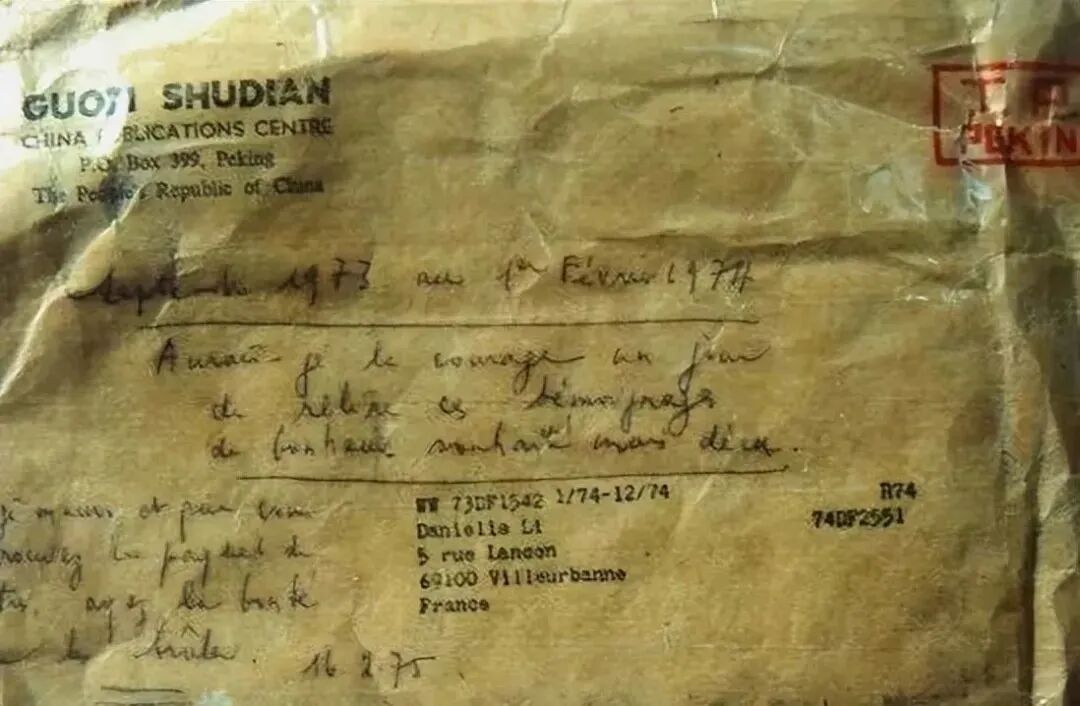 GUOZI SHUDIAN
CHINA PUBLICATIONS CENTRE
P.O. Box 399, Peking
The People's Republic of China
T P
PEKIN
Septembre 1973 au 1er Février 1974
Aurai je le courage un jour
de relire ces témoignages
de bonheur souhaité mais déçu.
WW 73DF1542 1/74-12/74
R74
74DF2551
Danielis Li
5 rue Lancon
69100 Villeurbanne
France
et que vous
le paquet de
ayez la bonté
le brûler. 16.2.75